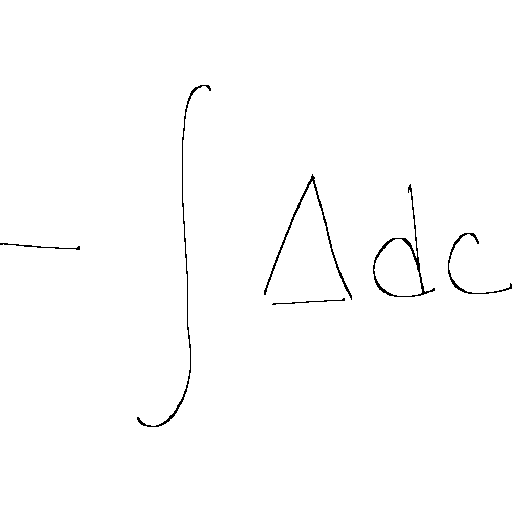 - ∫ Δ dc